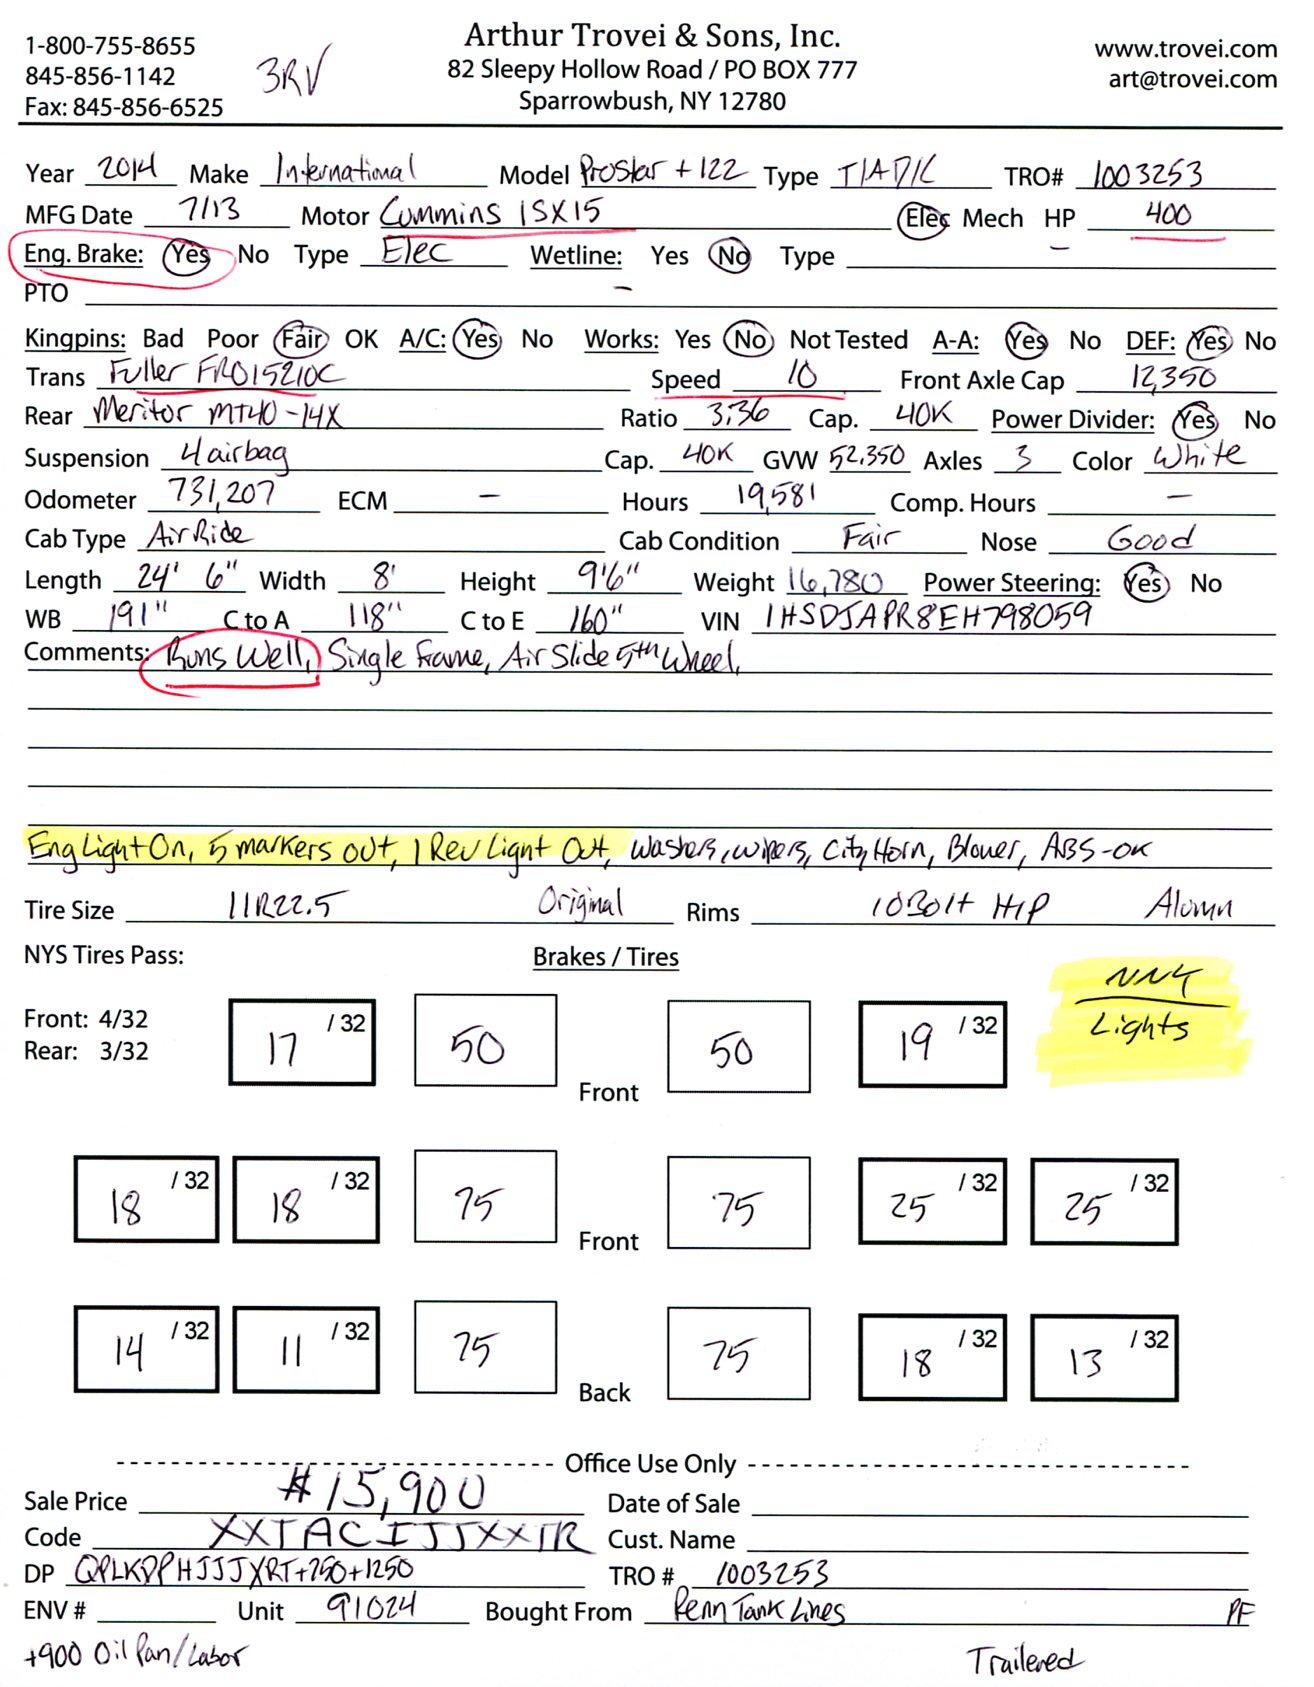 1-800-755-8655
845-856-1142
Fax: 845-856-6525
3RV
Arthur Trovei & Sons, Inc.
82 Sleepy Hollow Road / PO BOX 777
Sparrowbush, NY 12780
www.trovei.com
art@trovei.com
Year 2014 Make International Model Prostar + 122 Type T/A/D/C TRO# 1003253
MFG Date 7/13 Motor Cummins ISX15 Elec Mech HP 400
Eng. Brake: Yes No Type Elec Wetline: Yes No Type –
PTO –
Kingpins: Bad Poor Fair OK A/C: Yes No Works: Yes No Not Tested A-A: Yes No DEF: Yes No
Trans Fuller FRO15210C Speed 10 Front Axle Cap 12,350
Rear Meritor MT40-14X Ratio 3.36 Cap. 40K Power Divider: Yes No
Suspension 4 airbag Cap. 40K GVW 52,350 Axles 3 Color White
Odometer 731,207 ECM – Hours 19,581 Comp. Hours –
Cab Type Air Ride Cab Condition Fair Nose Good
Length 24' 6" Width 8' Height 9'6" Weight 16,780 Power Steering: Yes No
WB 191" C to A 118" C to E 160" VIN 1HSDJAPR8EH798059
Comments: Runs Well, Single Frame, Air Slide 5th Wheel,
Eng Light On, 5 markers out, 1 Rev Light Out, Washers, wipers, City Horn, Blower, ABS-OK
Tire Size 11R22.5 Original Rims 10 Bolt H/P Alumn
NYS Tires Pass: Brakes / Tires
NNY
Lights
Front: 4/32
Rear: 3/32
17 /32 50 Front 50 19 /32
18 /32 18 /32 75 Front 75 25 /32 25 /32
14 /32 11 /32 75 Back 75 18 /32 13 /32
Office Use Only
Sale Price #15,900 Date of Sale
Code XXTACIJJXXTR Cust. Name
DP QPLKDPHJJJXRT+750+1250 TRO # 1003253
ENV # Unit 91024 Bought From Penn Tank Lines PF
+900 Oil Pan/Labor Trailered